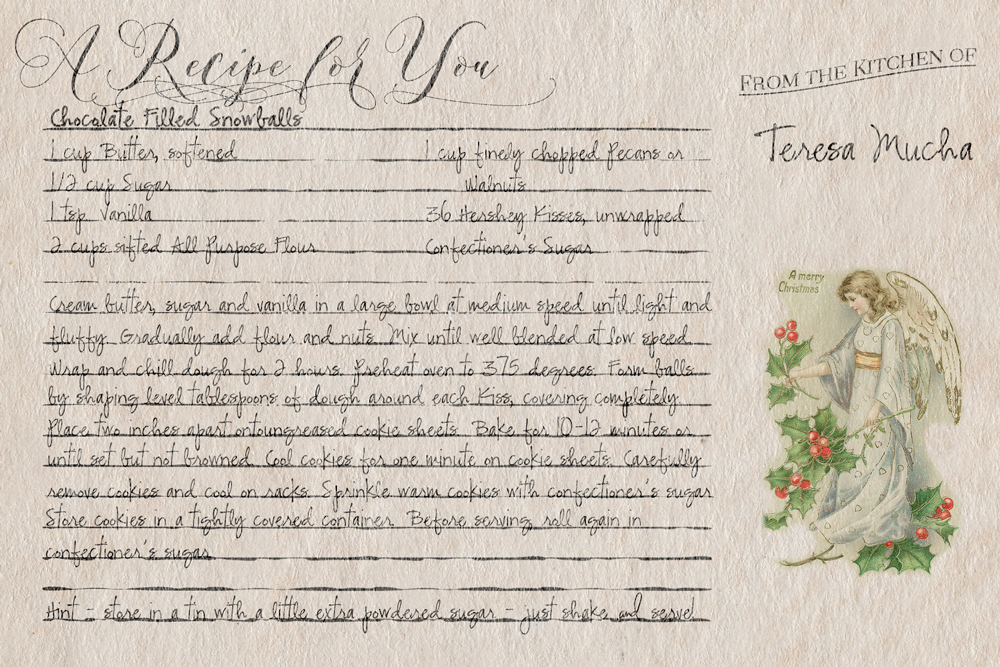 A Recipe for You
FROM THE KITCHEN OF
Teresa Mucha
Chocolate Filled Snowballs
1 cup Butter, softened
1 cup finely chopped Pecans or
Walnuts
1/2 cup Sugar
1 tsp. Vanilla
36 Hershey Kisses, unwrapped
2 cups sifted All Purpose Flour
Confectioner's Sugar
Cream butter, sugar and vanilla in a large bowl at medium speed until light and
fluffy. Gradually add flour and nuts. Mix until well blended at low speed.
Wrap and chill dough for 2 hours. Preheat oven to 375 degrees. Form balls
by shaping level tablespoons of dough around each Kiss, covering completely.
Place two inches apart ontoungreased cookie sheets. Bake for 10-12 minutes or
until set but not browned. Cool cookies for one minute on cookie sheets. Carefully
remove cookies and cool on racks. Sprinkle warm cookies with confectioner's sugar.
Store cookies in a tightly covered container. Before serving, roll again in
confectioner's sugar.
Hint - store in a tin with a little extra powdered sugar - just shake and serve!
A merry
Christmas